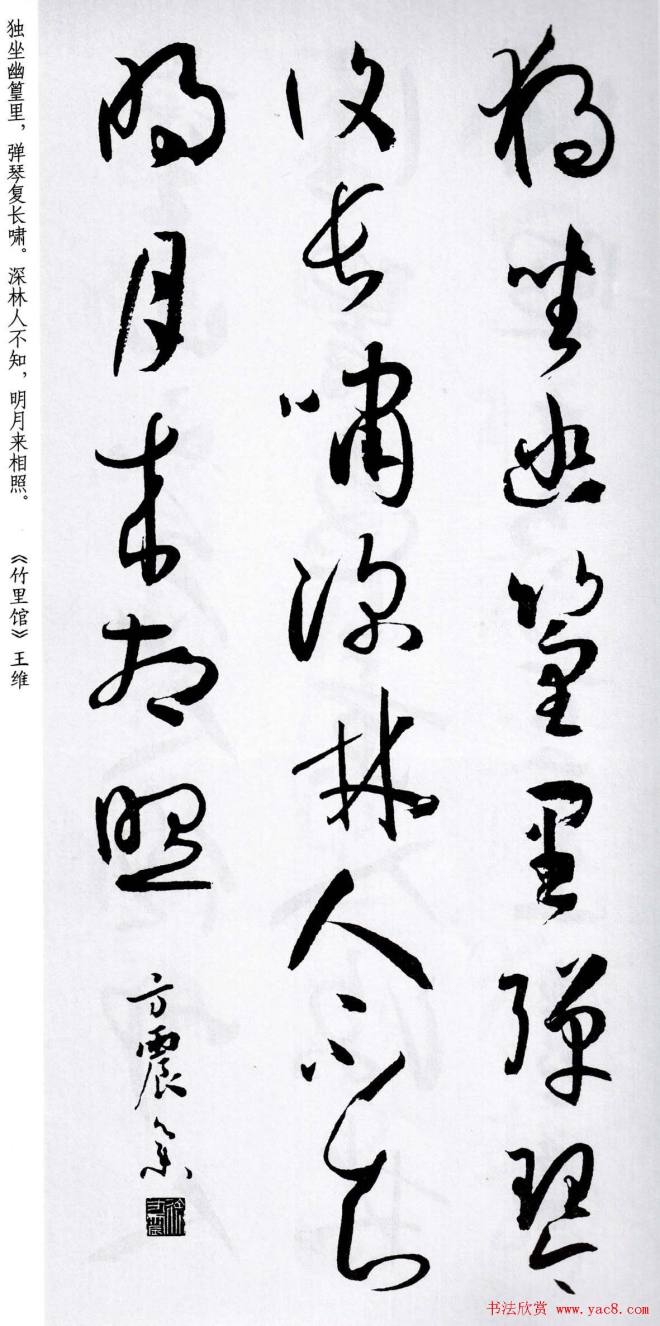 獨坐幽篁里彈琴
復長嘯深林人不知
明月来相照
方震篆
独坐幽篁里，弹琴复长啸。深林人不知，明月来相照。 《竹里馆》王维
书法欣赏 www.yac8.com